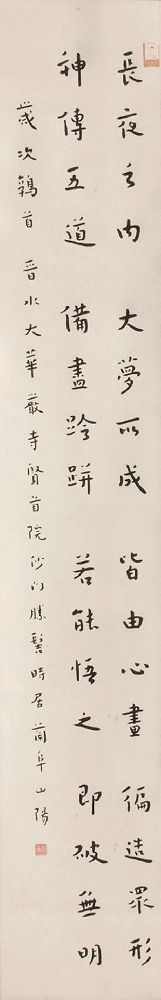 長夜之内 大夢所成 皆由心畫 徧造眾形
神傳五道 備盡跉跰 若能悟之 即破無明
歲次鶉首 晉水大華嚴寺賢首院沙門勝髻時居蘭阜山陽